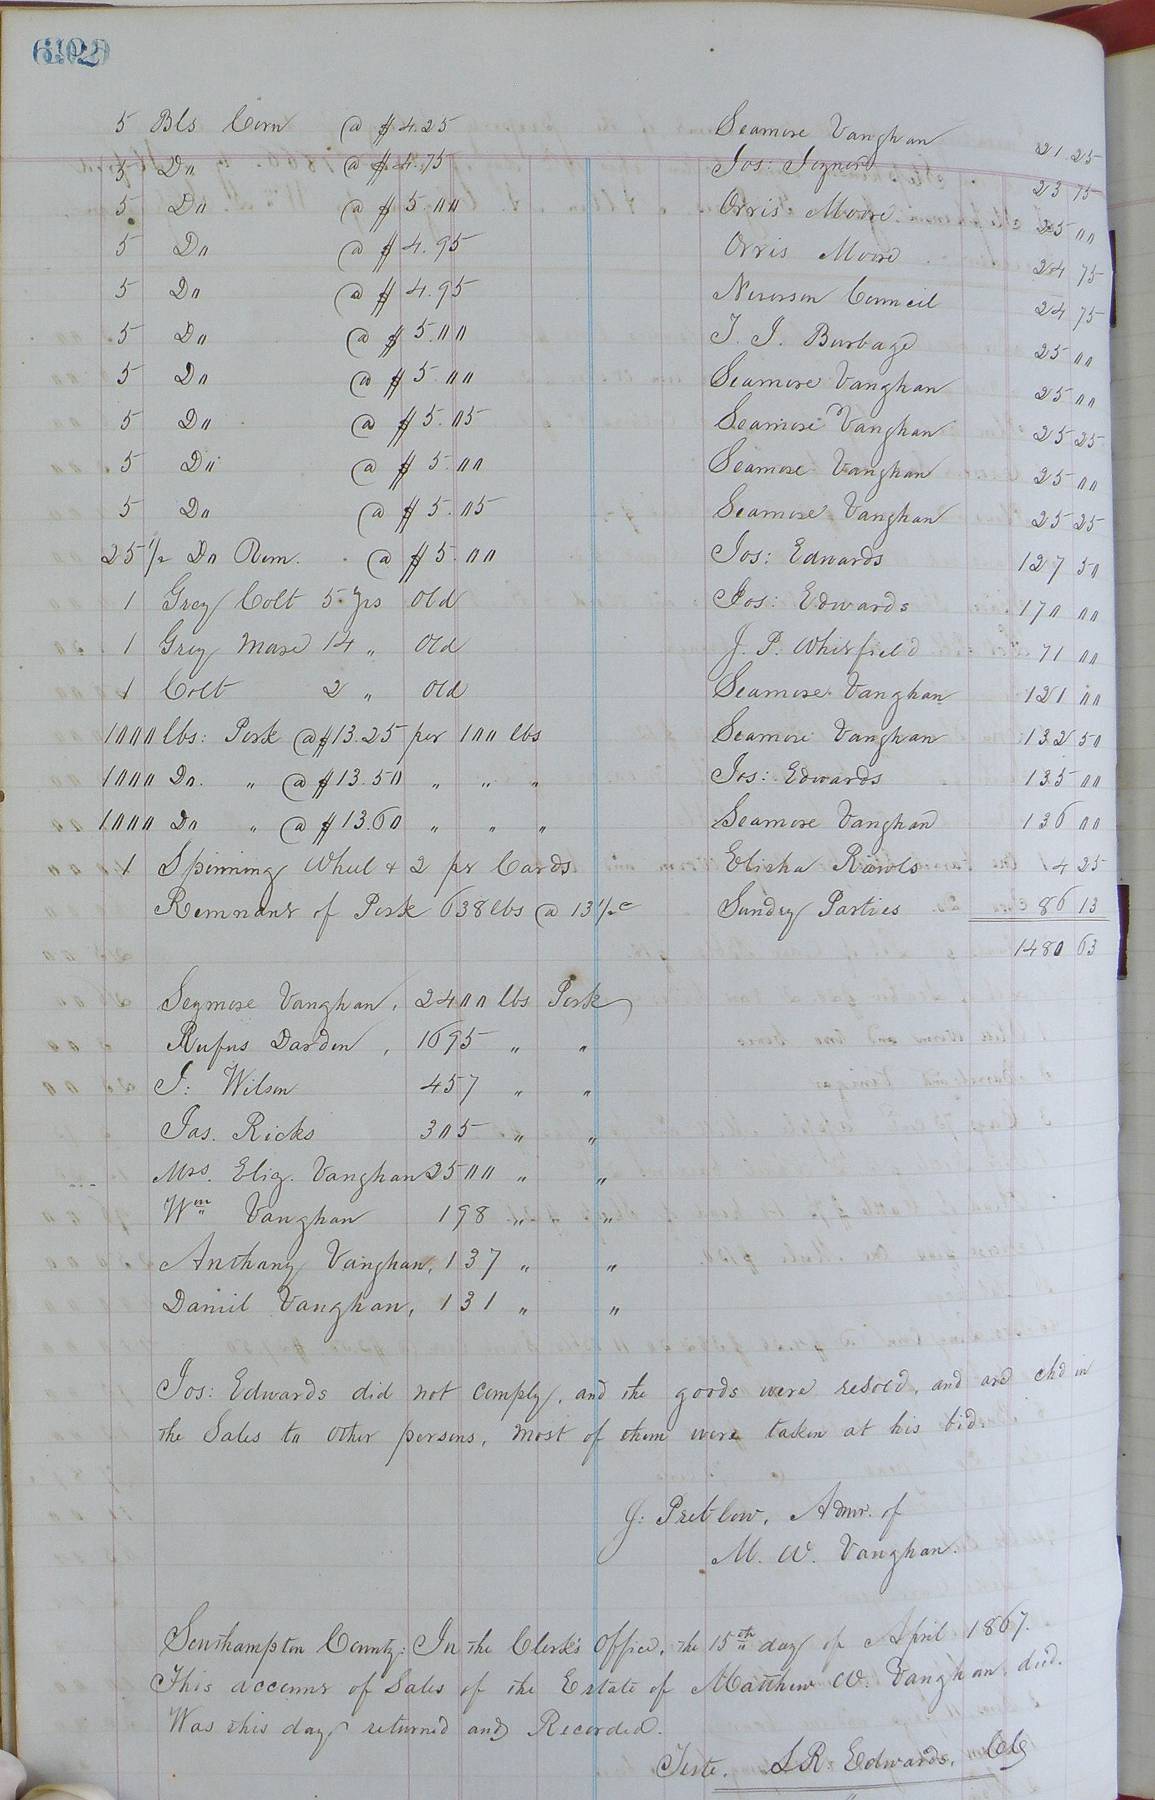 5 Bls Corn @ $4.25 Seamore Vaughan 21 25
5 Do @ $4.75 Jos: Joyner 23 75
5 Do @ $5.00 Orris Moore 25 00
5 Do @ $4.95 Orris Moore 24 75
5 Do @ $4.95 Council 24 75
5 Do @ $5.00 J. J. Burbage 25 00
5 Do @ $5.00 Seamore Vaughan 25 00
5 Do @ $5.05 Seamore Vaughan 25 25
5 Do @ $5.00 Seamore Vaughan 25 00
5 Do @ $5.05 Seamore Vaughan 25 25
25 1/2 Do Rem. @ $5.00 Jos: Edwards 127 50
1 Grey Colt 5 yrs Old Jos: Edwards 170 00
1 Grey Mare 14 " Old J. P. Whitfield 71 00
1 Colt 2 " Old Seamore Vaughan 121 00
1000 lbs: Pork @ $13.25 per 100 lbs Seamore Vaughan 132 50
1000 Do. " @ $13.50 " " " Jos: Edwards 135 00
1000 Do " @ $13.60 " " " Seamore Vaughan 136 00
1 Spinning Wheel & 2 pr Cards Elisha Rawls 4 25
Remnant of Pork 638 lbs @ 13 1/2 c Sundry Parties 86 13
1480 63
Seymore Vaughan, 2400 lbs Pork
Rufus Darden, 1695 " "
J: Wilson 457 " "
Jas. Ricks 305 " "
Mrs. Eliz. Vaughan 2500 " "
Wm Vaughan 198 " "
Anthony Vaughan, 137 " "
Daniel Vaughan, 131 " "
Jos: Edwards did not comply, and the goods were resold, and are chd in
the Sales to other persons, most of them were taken at his bid.
J: Pretlow, Admr. of
M. W. Vaughan.
Southampton County: In the Clerk's Office, the 15th day of April 1867.
This account of Sales of the Estate of Matthew W. Vaughan decd.
Was this day returned and Recorded.
Teste. L R. Edwards, CC